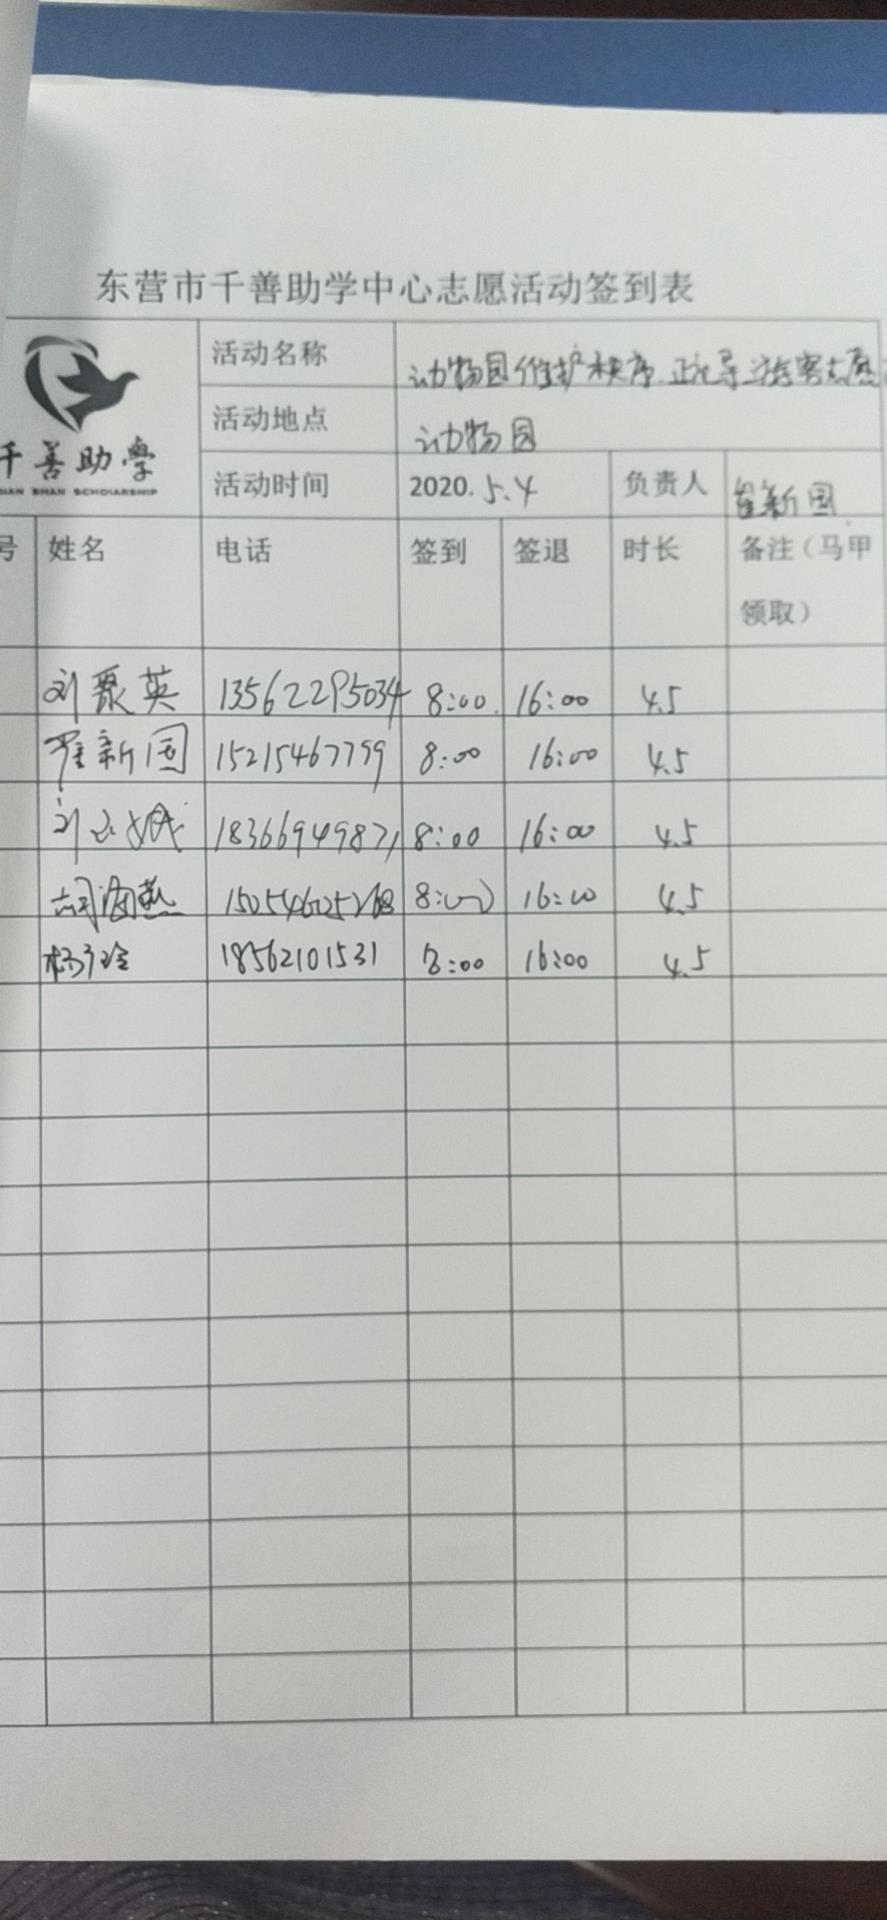 东营市千善助学中心志愿活动签到表
千善助学
IAN SHAN SCHOLARSHIP
活动名称 动物园维护秩序.正化导游客志愿
活动地点 动物园
活动时间 2020.5.4 负责人 崔新国
号 姓名 电话 签到 签退 时长 备注（马甲
领取）
刘聚英 13562295034 8:00 16:00 4.5
崔新国 15215467799 8:00 16:00 4.5
刘 18366949871 8:00 16:00 4.5
胡海燕 8:00 16:00 4.5
杨玲 18562101531 8:00 16:00 4.5